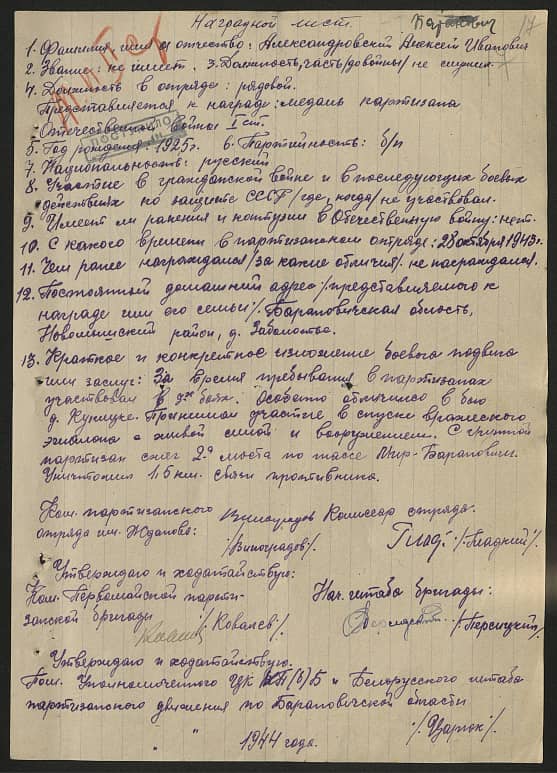 Наградной лист.
17
1. Фамилия, имя и отчество: Александровский Алексей Иванович
2. Звание: не имеет. 3. Должность, часть /до войны/ не служил
4. Должность в отряде: рядовой.
Представляется к награде: медаль партизана
Отечественной войны I ст.
5. Год рождения 1925 г. 6. Партийность: б/п
7. Национальность: русский
8. Участие в гражданской войне и в последующих боевых
действиях по защите СССР /где, когда/ не участвовал.
9. Имеет ли ранения и контузии в Отечественную войну: нет.
10. С какого времени в партизанском отряде: 28 октября 1943 г.
11. Чем ранее награждался /за какие отличия/. не награждался.
12. Постоянный домашний адрес /представляемого к
награде или его семьи/. Барановичская область,
Новомышский район, д. Заболотье.
13. Краткое и конкретное изложение боевого подвига
или заслуг: За время пребывания в партизанах
участвовал в 2х боях. Особенно отличился в бою
д. Куницче. Принимал участие в спуске вражеского
эшелона с живой силой и вооружением. С группой
партизан сжег 2а моста по шассе Мир-Барановичи.
Уничтожил 1,5 км. связи противника.
Ком. партизанского
отряда им. Жданова: /Виноградов/. Комиссар отряда: /Гладкий/.
Утверждаю и ходатайствую:
Ком. Первомайской парти-
занской бригады /Ковалев/. Нач. штаба бригады: /Персицкий/.
Утверждаю и ходатайствую.
Пом. Уполномоченного ЦК КП(б)Б и Белорусского штаба
партизанского движения по Барановичской области
/Царюк/.
" " 1944 года.